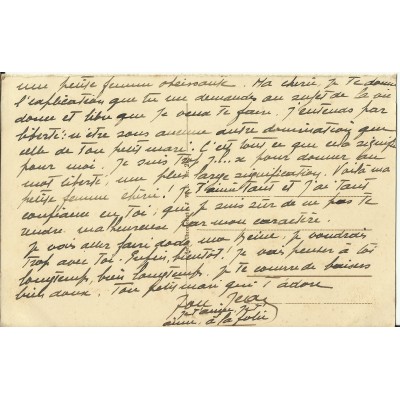 une petite femme obéissante. Ma chérie, je te donne
l'explication que tu me demandes au sujet de la vie
douce et libre que je veux te faire. J'entends par
liberté: n'être sous aucune autre domination que
celle de ton petit mari. C'est tout ce que cela signifie
pour moi. Je suis trop j...x pour donner au
mot liberté une plus large signification. Voilà ma
petite femme chérie! Je t'aime tant et j'ai tant
confiance en toi, que je suis sûr de ne pas te
rendre malheureuse par mon caractère.
Je vais aller faire dodo, ma Reine, je voudrais
trop avec toi. Enfin, bientôt! Je vais penser à toi
longtemps, bien longtemps. Je te couvre de baisers
bien doux. Ton petit mari qui t'adore
Jean
aime, à la folie